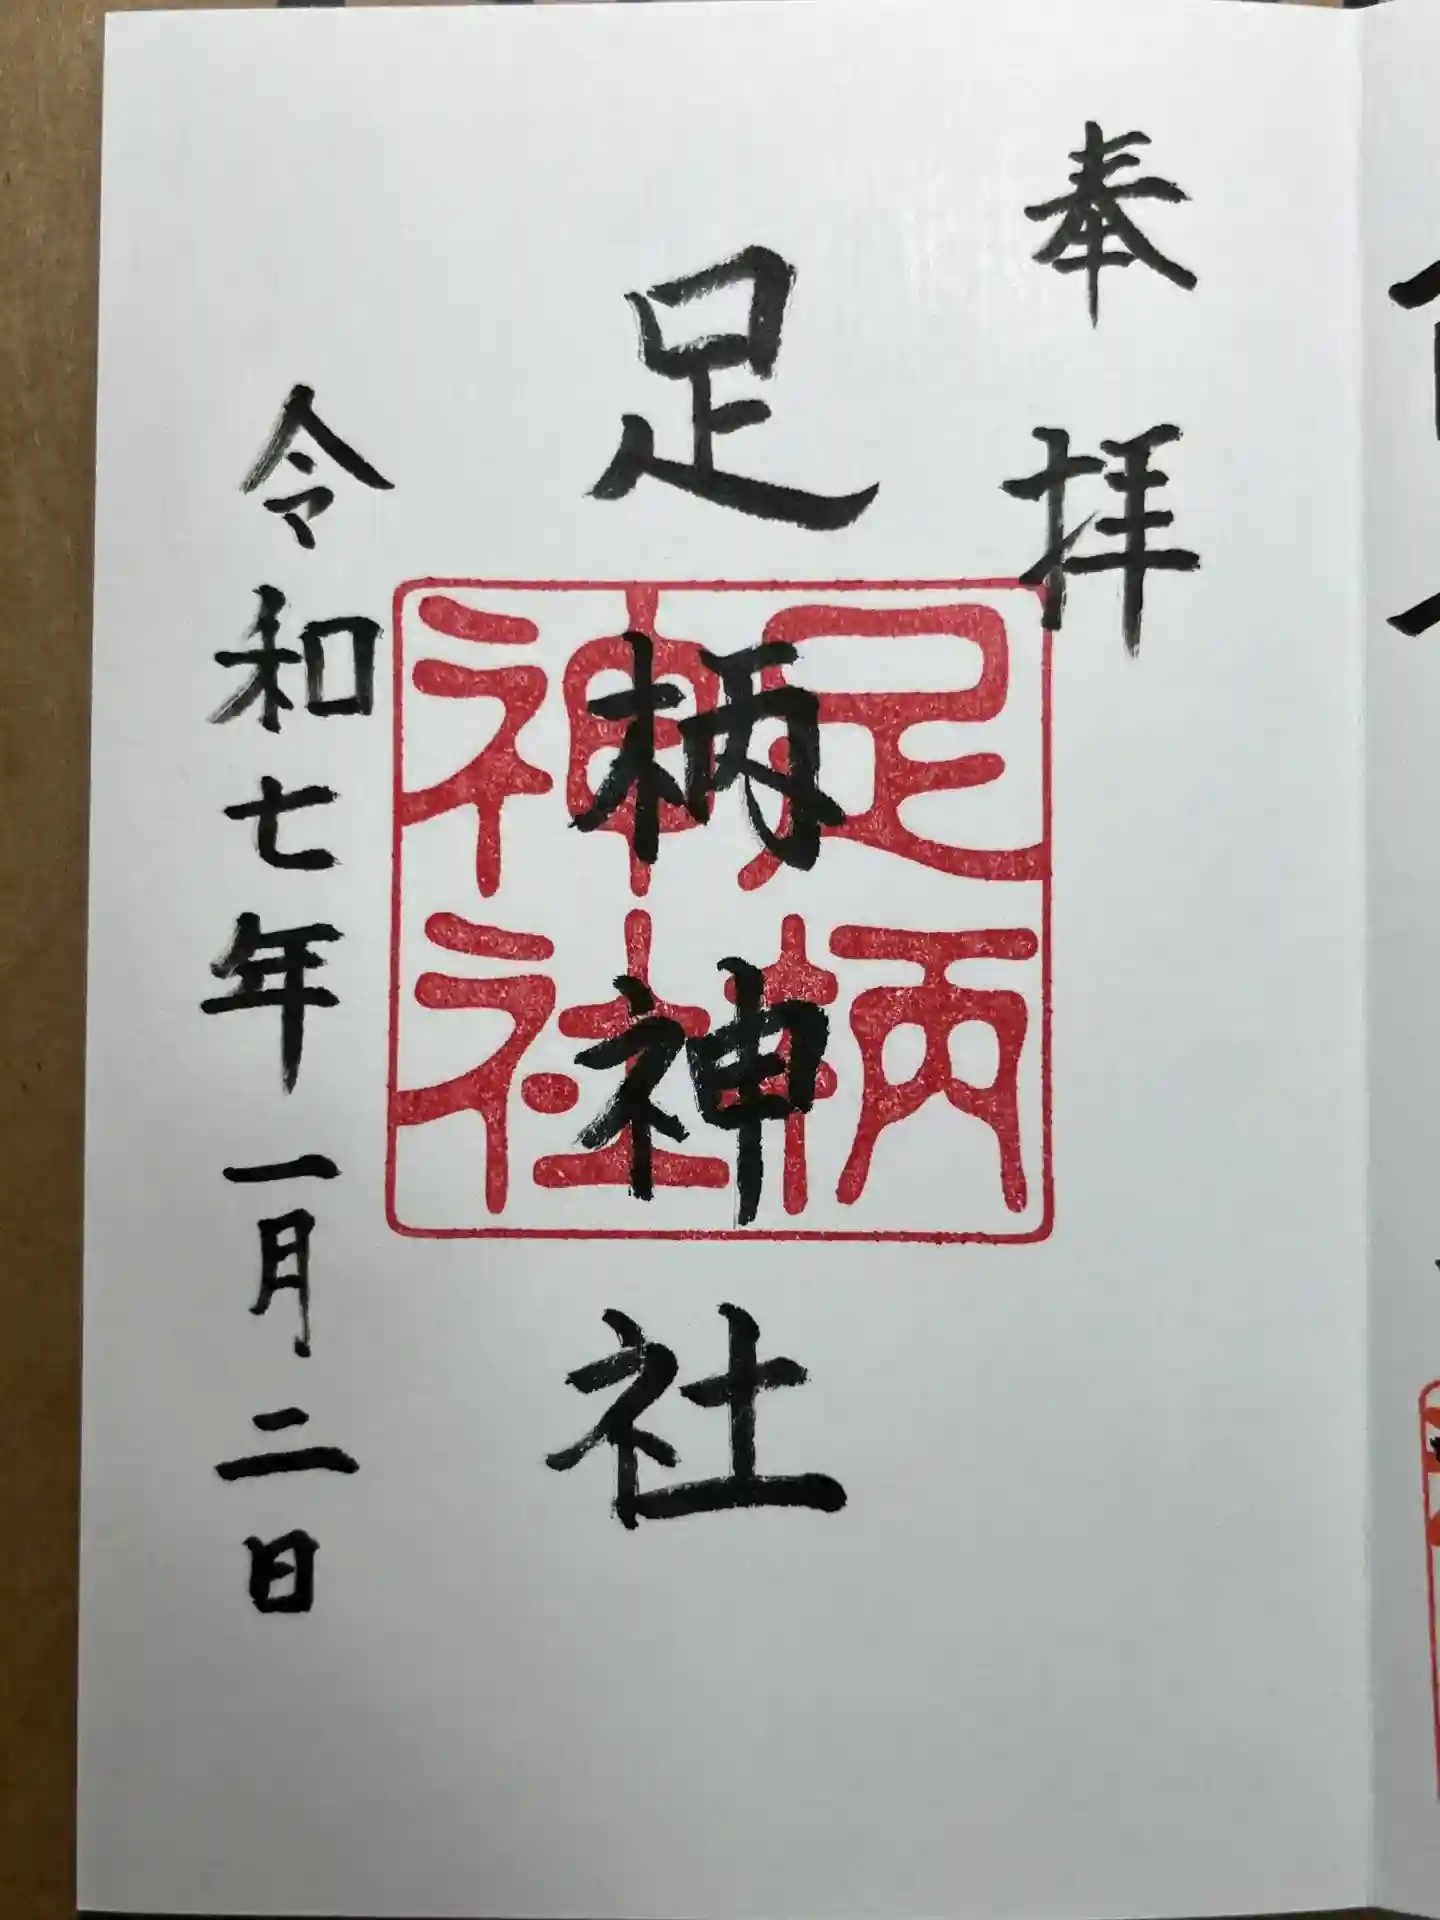 奉拝
足柄神社
令和七年一月二日
足柄
神社